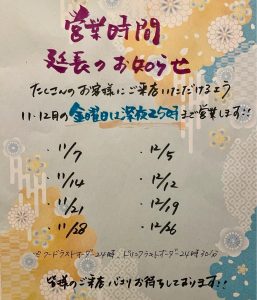 営業時間
延長のお知らせ
たくさんのお客様にご来店いただけるよう
11・12月の金曜日は深夜25時まで営業します!!
・11/7 ・12/5
・11/14 ・12/12
・11/21 ・12/19
・11/28 ・12/26
フードラストオーダー24時 ドリンクラストオーダー24時30分
皆様のご来店 お待ちしております!!